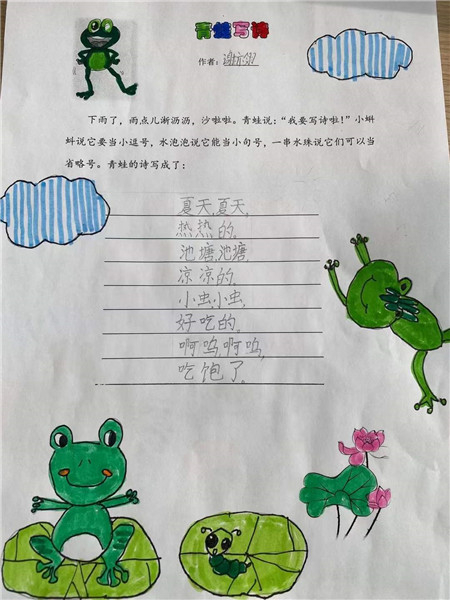 青蛙写诗
作者：
下雨了，雨点儿淅沥沥，沙啦啦。青蛙说：“我要写诗啦！”小蝌
蚪说它要当小逗号，水泡泡说它能当小句号，一串水珠说它们可以当
省略号。青蛙的诗写成了：
夏天,夏天,
热热的。
池塘,池塘,
凉凉的。
小虫,小虫,
好吃的。
啊呜,啊呜,
吃饱了。